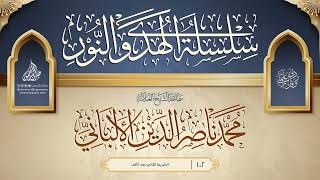 سلسلة الهدى والنور
سماحة الشيخ العلامة
محمد ناصر الدين الألباني
الشريط الثاني بعد الألف